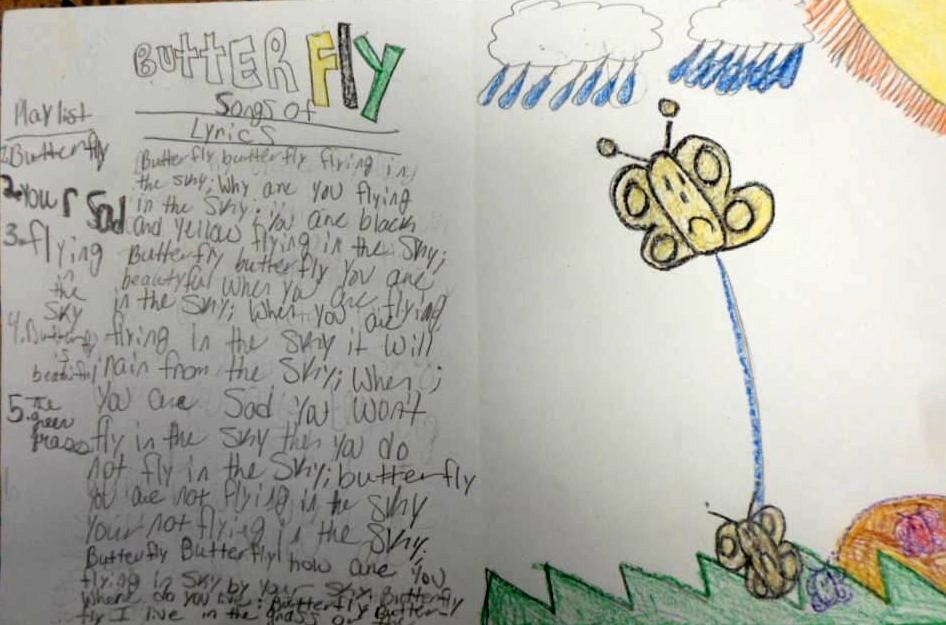 BUTTERFLY
Songs of
Lyrics
Playlist
1. Butterfly
2. Your Sad
3. flying
in
the
Sky
4. Butterfly
is
beautiful
5. The
green
grass
Butterfly butterfly flying in
the sky; Why are you flying
in the Sky; You are black
and Yellow flying in the Sky;
Butterfly butterfly you are
beautyful when you are
in the sky; When you are flying
flying in the sky it will
rain from the sky; when;
you are Sad you wont
fly in the sky then you do
not fly in the sky; butterfly
you are not flying in the sky
Your not flying in the Sky;
Butterfly Butterfly! how are you
flying in Sky by your Butterfly
where do you live; Butterfly Butterfly
fly I live in the grass Butterfly